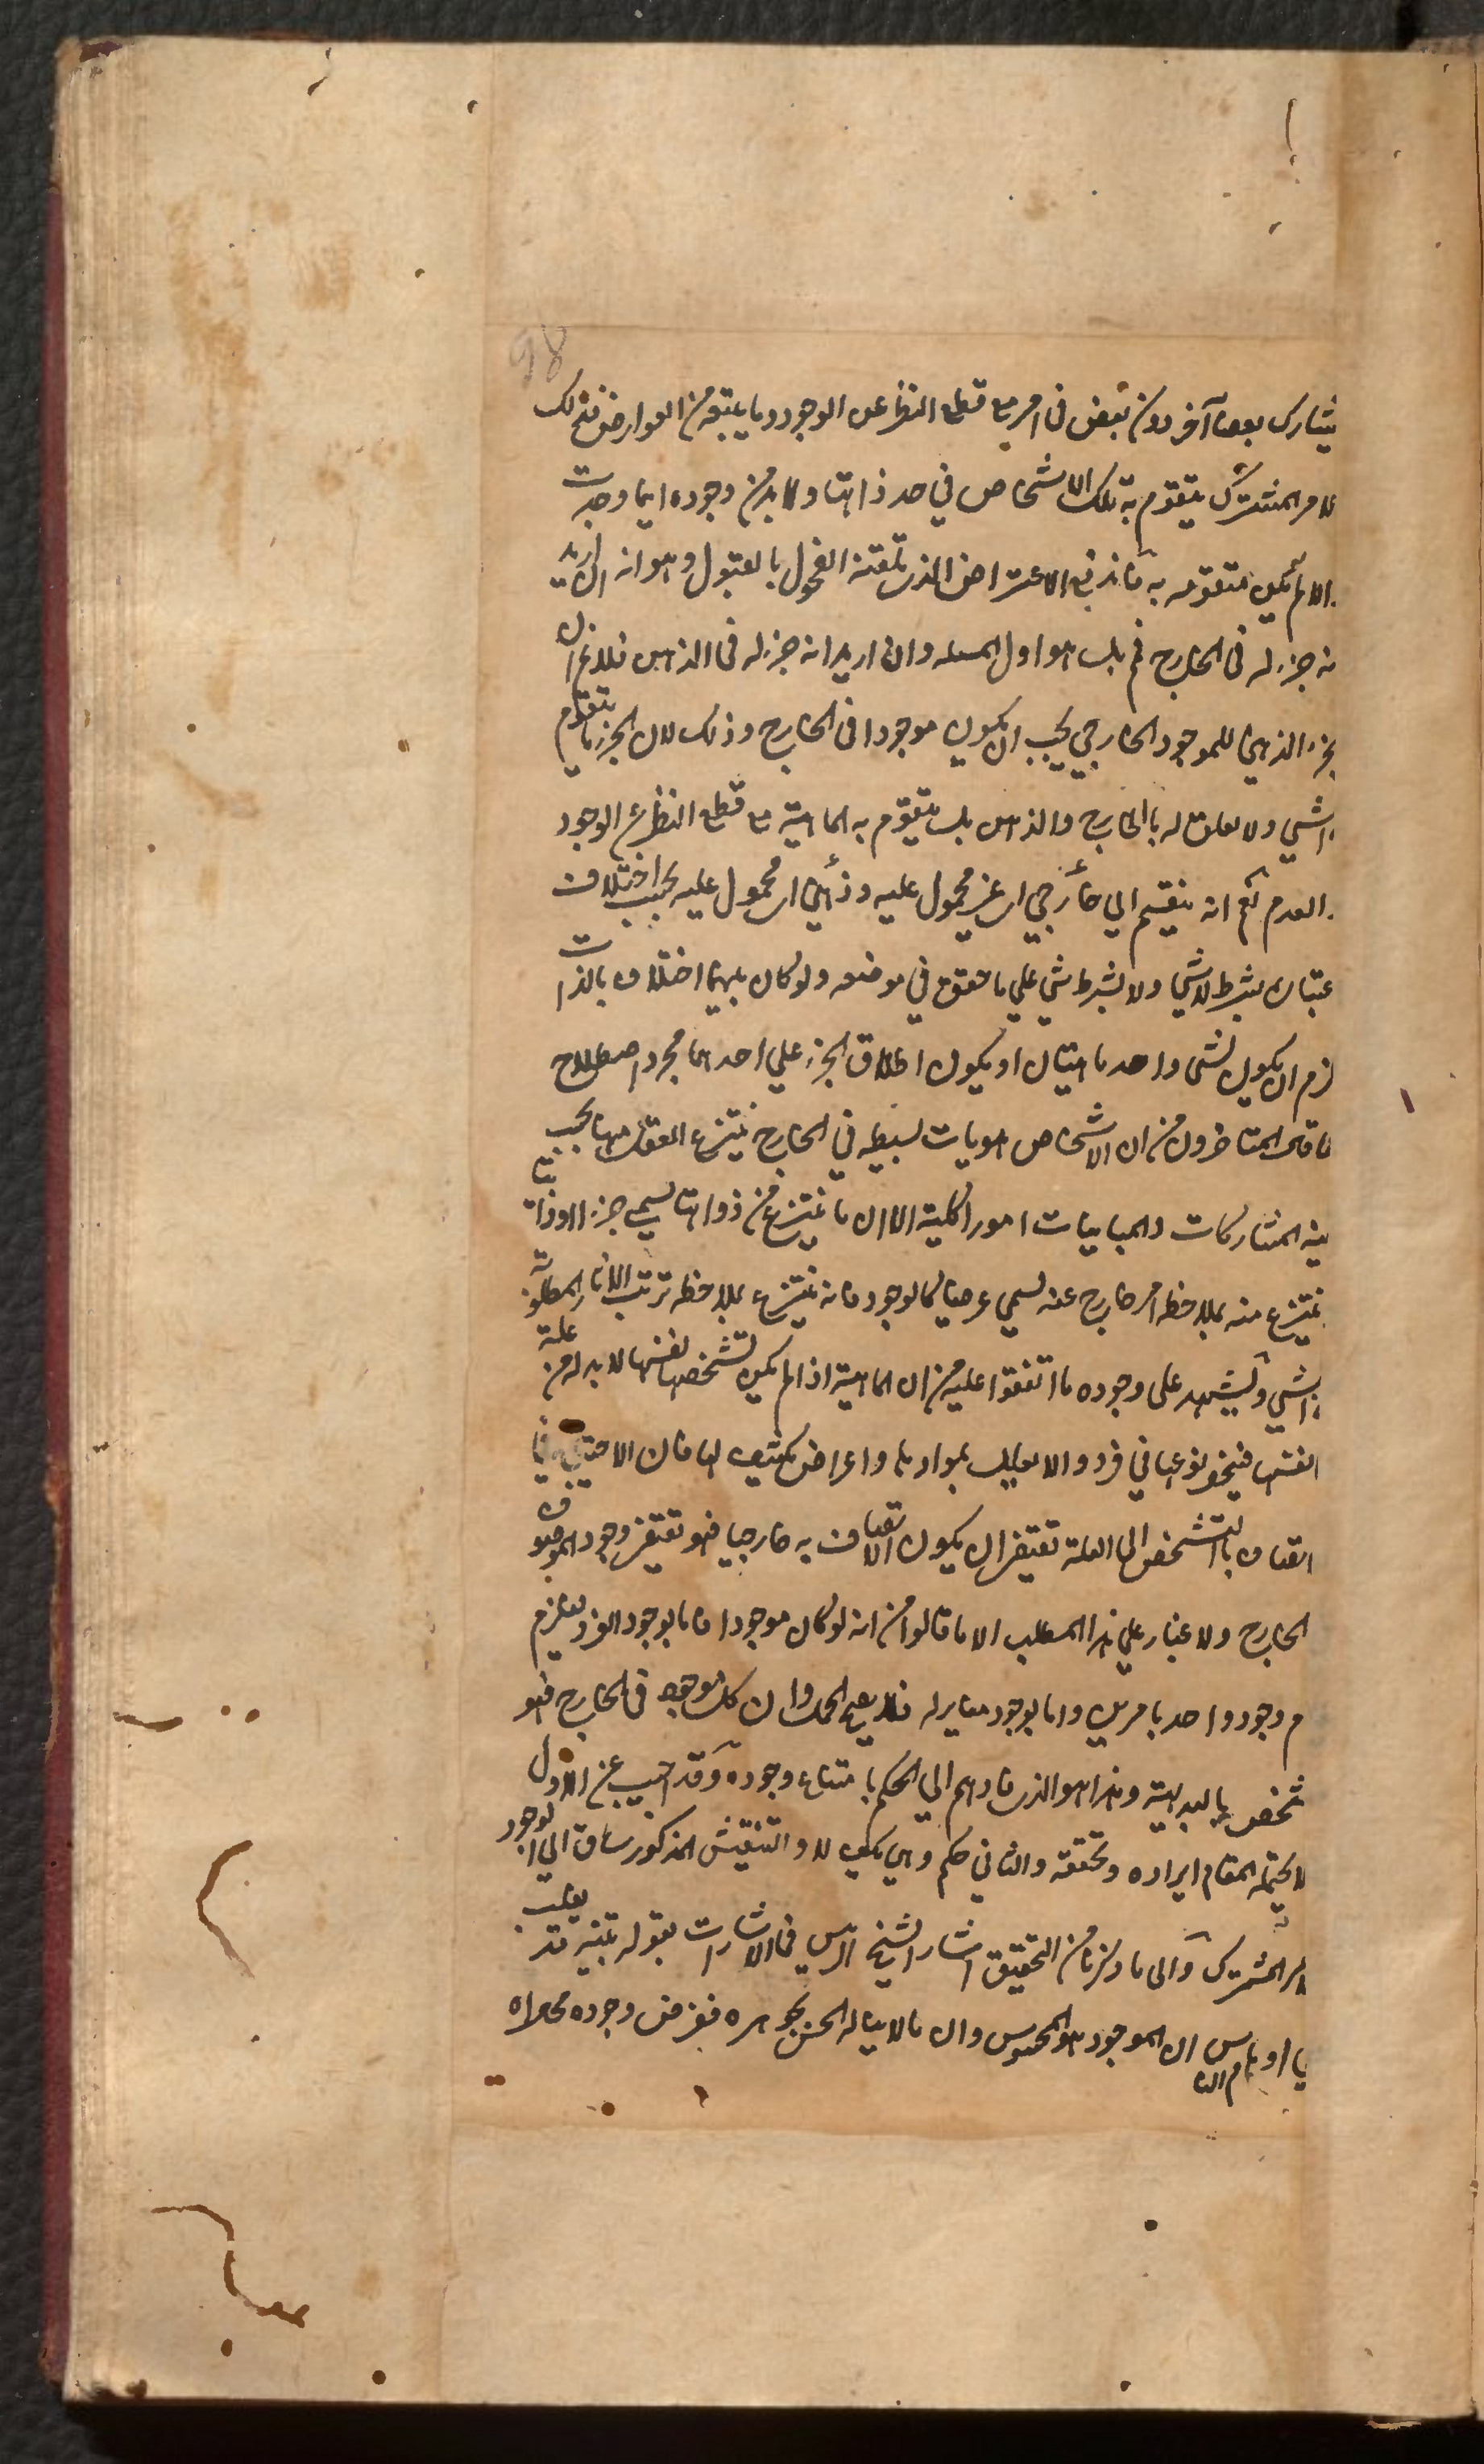 98
يشارك بعضا آخر دون بعض فى امر مع قطع النظر عن الوجود وما يتبعه من العوارض فذلك
لامر المشترك يتقوم به تلك الاشخاص في حد ذاتها ولا بد من وجوده اينما وجدت
الا لم يكن متقومه به فاندفع الاعتراض الذى تلقته الفحول بالقبول وهو انه ان اريد
نه جزء له فى الخارج فم بل هو اول المسئله وان اريد انه جزء له فى الذهن فلا نم ان
لجزء الذهني للموجود الخارجي يجب ان يكون موجودا فى الخارج وذلك لان الجزء ما يتقوم
به الشي ولا تعلق له بالخارج والذهن بل يتقوم به الماهية مع قطع النظر عن الوجود
العدم نعم انه ينقسم الي خارجي اى غير محمول عليه وذهني اى محمول عليه بحسب اختلاف
عتباره بشرط لا شي ولا بشرط شي علي ما حقق في موضعه ولو كان بينهما اختلاف بالذات
لزم ان يكون لشى واحد ماهيتان او يكون اطلاق الجزء علي احدهما مجرد اصطلاح
ما قاله المتاخرون من ان الاشخاص هويات بسيطه في الخارج ينتزع العقل منها بحسب
ينه المشاركات والمباينات امورا كلية الا ان ما ينتزع من ذواتها يسمي جزءا او ذات
ينتزع منه بملاحظه امر خارج عنه يسمي عرضيا كالوجود فانه ينتزع بملاحظه ترتب الآثار المطلوبة
بالشي ويشهد على وجوده ما اتفقوا عليه من ان الماهية اذا لم يكن تشخصها بنفسها لا بد له من علة
نفسها فينحصر نوعها في فرد والا يعلل بموادها واعراض تكتنف لها فان الاحتياج في
اتصاف بالتشخص الى العلة تقتضى ان يكون الاتصاف به خارجيا فهو تقتضى وجود الموصوف فى
الخارج ولا غبار علي هذا المطلب الا ما قالوا من انه لو كان موجودا فاما بوجود الفرد فيلزم
م وجود واحد بامرين واما بوجود مغاير له فلا يصح الحمل وان كل موجود فى الخارج فهو
شخص بالبديهة وهذا هو الذى قادهم الي الحكم بامتناع وجوده وقد اجيب عن الاول
لا يحتمله المقام ايراده وتحققه والثاني حكم وهمي كيف لا والتفتيش المذكور ساق الي الوجود
امر المشترك والى ما ذكرنا من التحقيق اشار الشيخ الرئيس في الاشارات بقوله تنبيه قد يغلب
على اوهام الناس ان الموجود هو المحسوس وان ما لا يناله الحس بجوهره ففرض وجوده محال اه